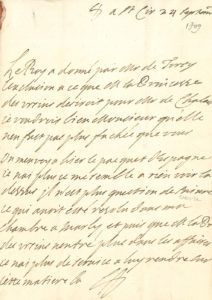 a St Cir ce 24 septembre
1709
Le Roy a donné par Mr de Torcy
l'exclusion a ce que Me la Princesse
des ursins desiroit pour Me de Chalais
je voudrois bien Monsieur qu'elle
n'en fust pas plus fachée que vous
on m'envoya hier le paquet d'Espagne
pas plus ce me semble a rien sur la
dessus il n'est plus question de
ce qui avoit esté resolu dans ma
chambre a Marly et puis que Me la Pr
des ursins rentre plus dans les affaires
je n'ai plus de service a luy rendre sur
cette matiere la